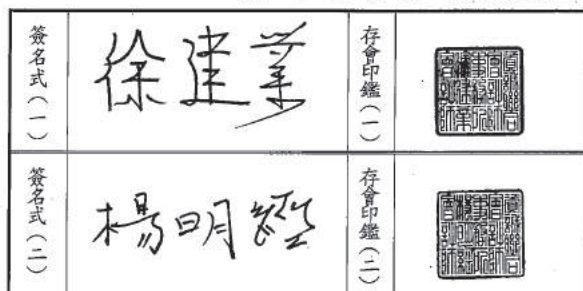 簽名式(一)
徐建業
存會印鑑(一)
簽名式(二)
楊明經
存會印鑑(二)